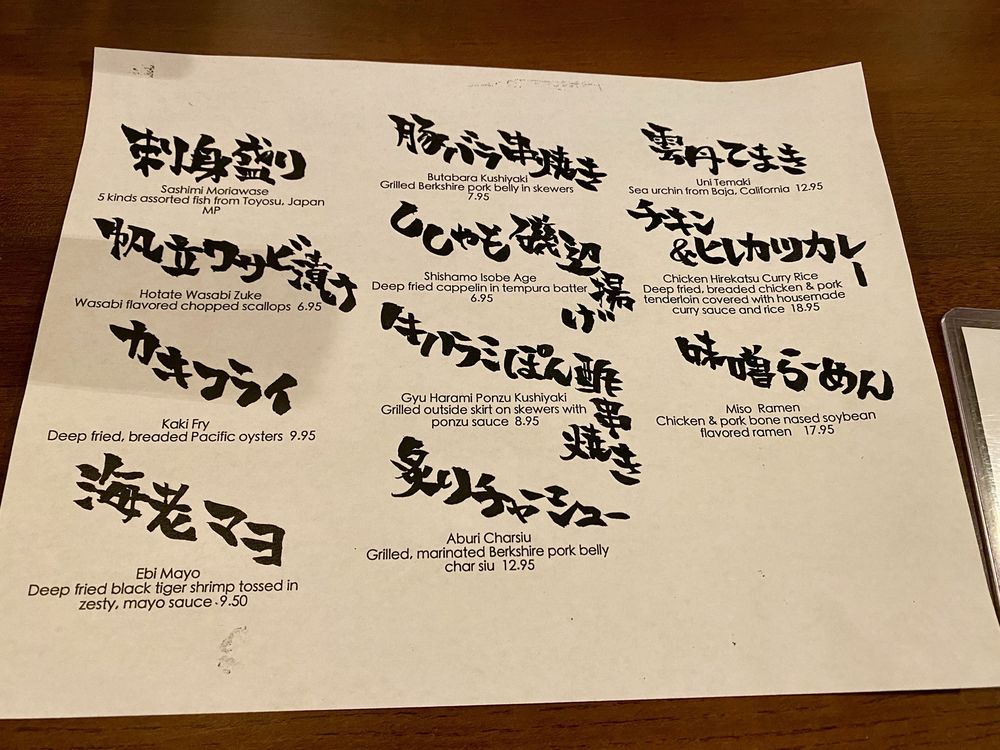 刺身盛り
Sashimi Moriawase
5 kinds assorted fish from Toyosu, Japan
MP
帆立ワサビ漬け
Hotate Wasabi Zuke
Wasabi flavored chopped scallops 6.95
カキフライ
Kaki Fry
Deep fried, breaded Pacific oysters 9.95
海老マヨ
Ebi Mayo
Deep fried black tiger shrimp tossed in
zesty, mayo sauce 9.50
豚バラ串焼き
Butabara Kushiyaki
Grilled Berkshire pork belly in skewers
7.95
ししゃも磯辺
揚
げ
Shishamo Isobe Age
Deep fried cappelin in tempura batter
6.95
牛ハラミぽん酢
串
焼き
Gyu Harami Ponzu Kushiyaki
Grilled outside skirt on skewers with
ponzu sauce 8.95
炙りチャーシュー
Aburi Charsiu
Grilled, marinated Berkshire pork belly
char siu 12.95
雲丹てまき
Uni Temaki
Sea urchin from Baja, California 12.95
チキン
&ヒレカツカレー
Chicken Hirekatsu Curry Rice
Deep fried, breaded chicken & pork
tenderloin covered with housemade
curry sauce and rice 18.95
味噌らーめん
Miso Ramen
Chicken & pork bone nased soybean
flavored ramen 17.95